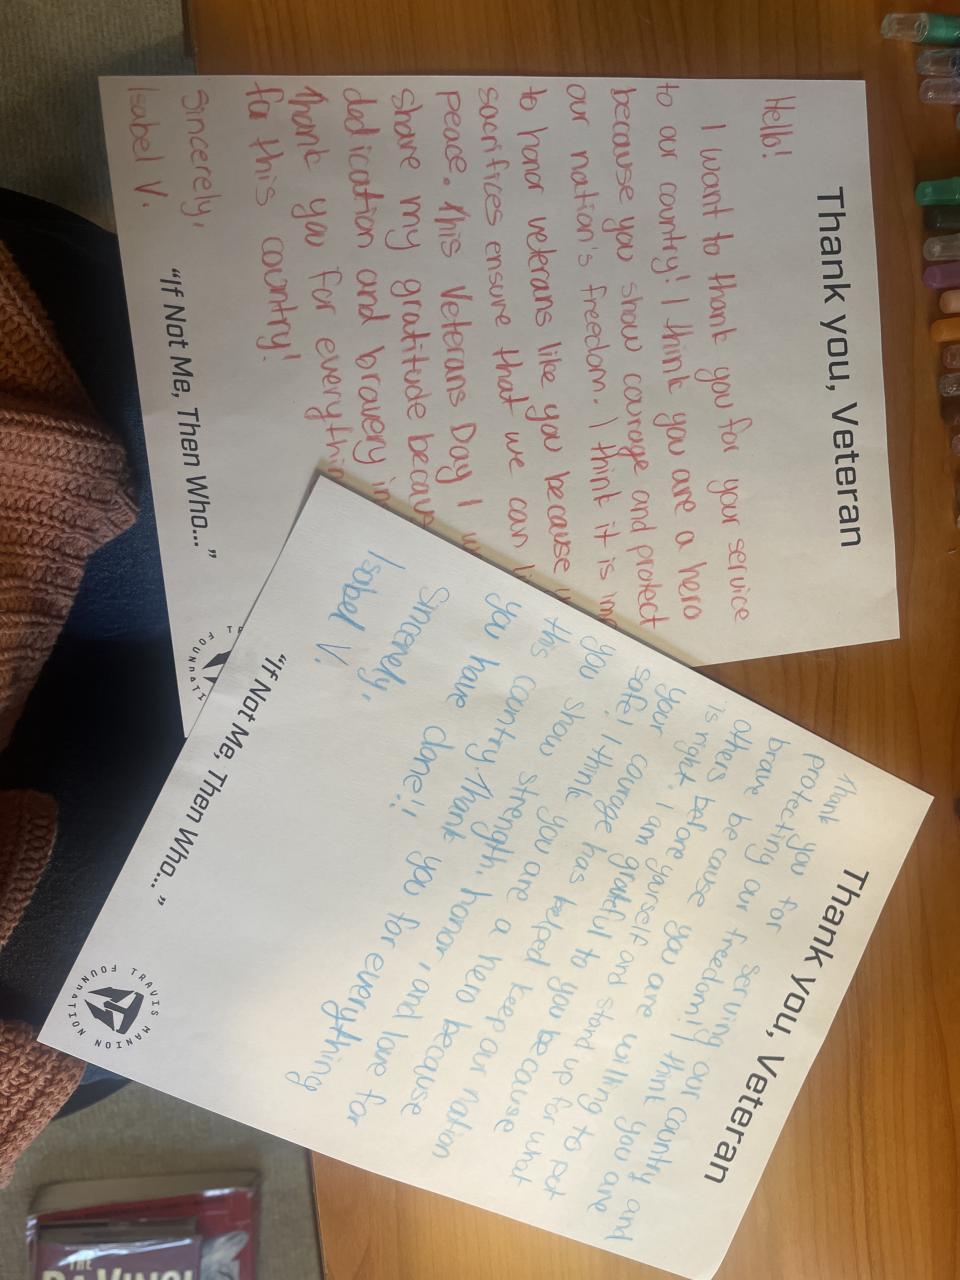 Thank you, Veteran
Hello!
I want to thank you for your service
to our country! I think you are a hero
because you show courage and protect
our nation's freedom. I think it is
to honor veterans like you because
sacrifices ensure that we can
peace. This Veterans Day I
share my gratitude
dedication and bravery in
Thank you for
for this country!
Sincerely,
Isabel V.
"If Not Me, Then Who..."
Thank you, Veteran
Thank you for serving our country and
protecting our freedom! I think you are
brave because you are willing to put
others before yourself and stand up for what
is right. I am grateful to you because
your courage has helped keep our nation
safe! I think you are a hero because
you show strength, honor, and love for
this country. Thank you for everything
you have done!!
Sincerely,
Isabel V.
"If Not Me, Then Who..."
TRAVIS MANION
FOUNDATION
THE
DA VINCI